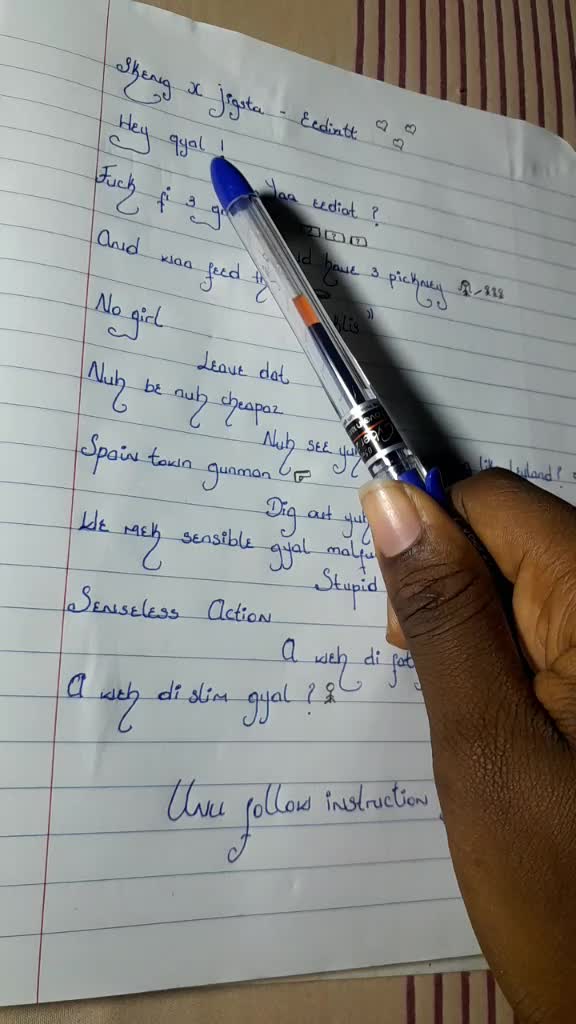 Skeng x jigsta - Eediatt
Hey gyal !
Fuck fi 3 Yaa eediat ?
And waa feed have 3 pickney
No girl
Leave dat
Nuh be nuh cheapaz
Nuh see
Spain town gunman
Dig out yuh
We mek sensible gyal
Stupid
Senseless Action
A weh di
A weh di slim gyal ?
Unu follow instruction